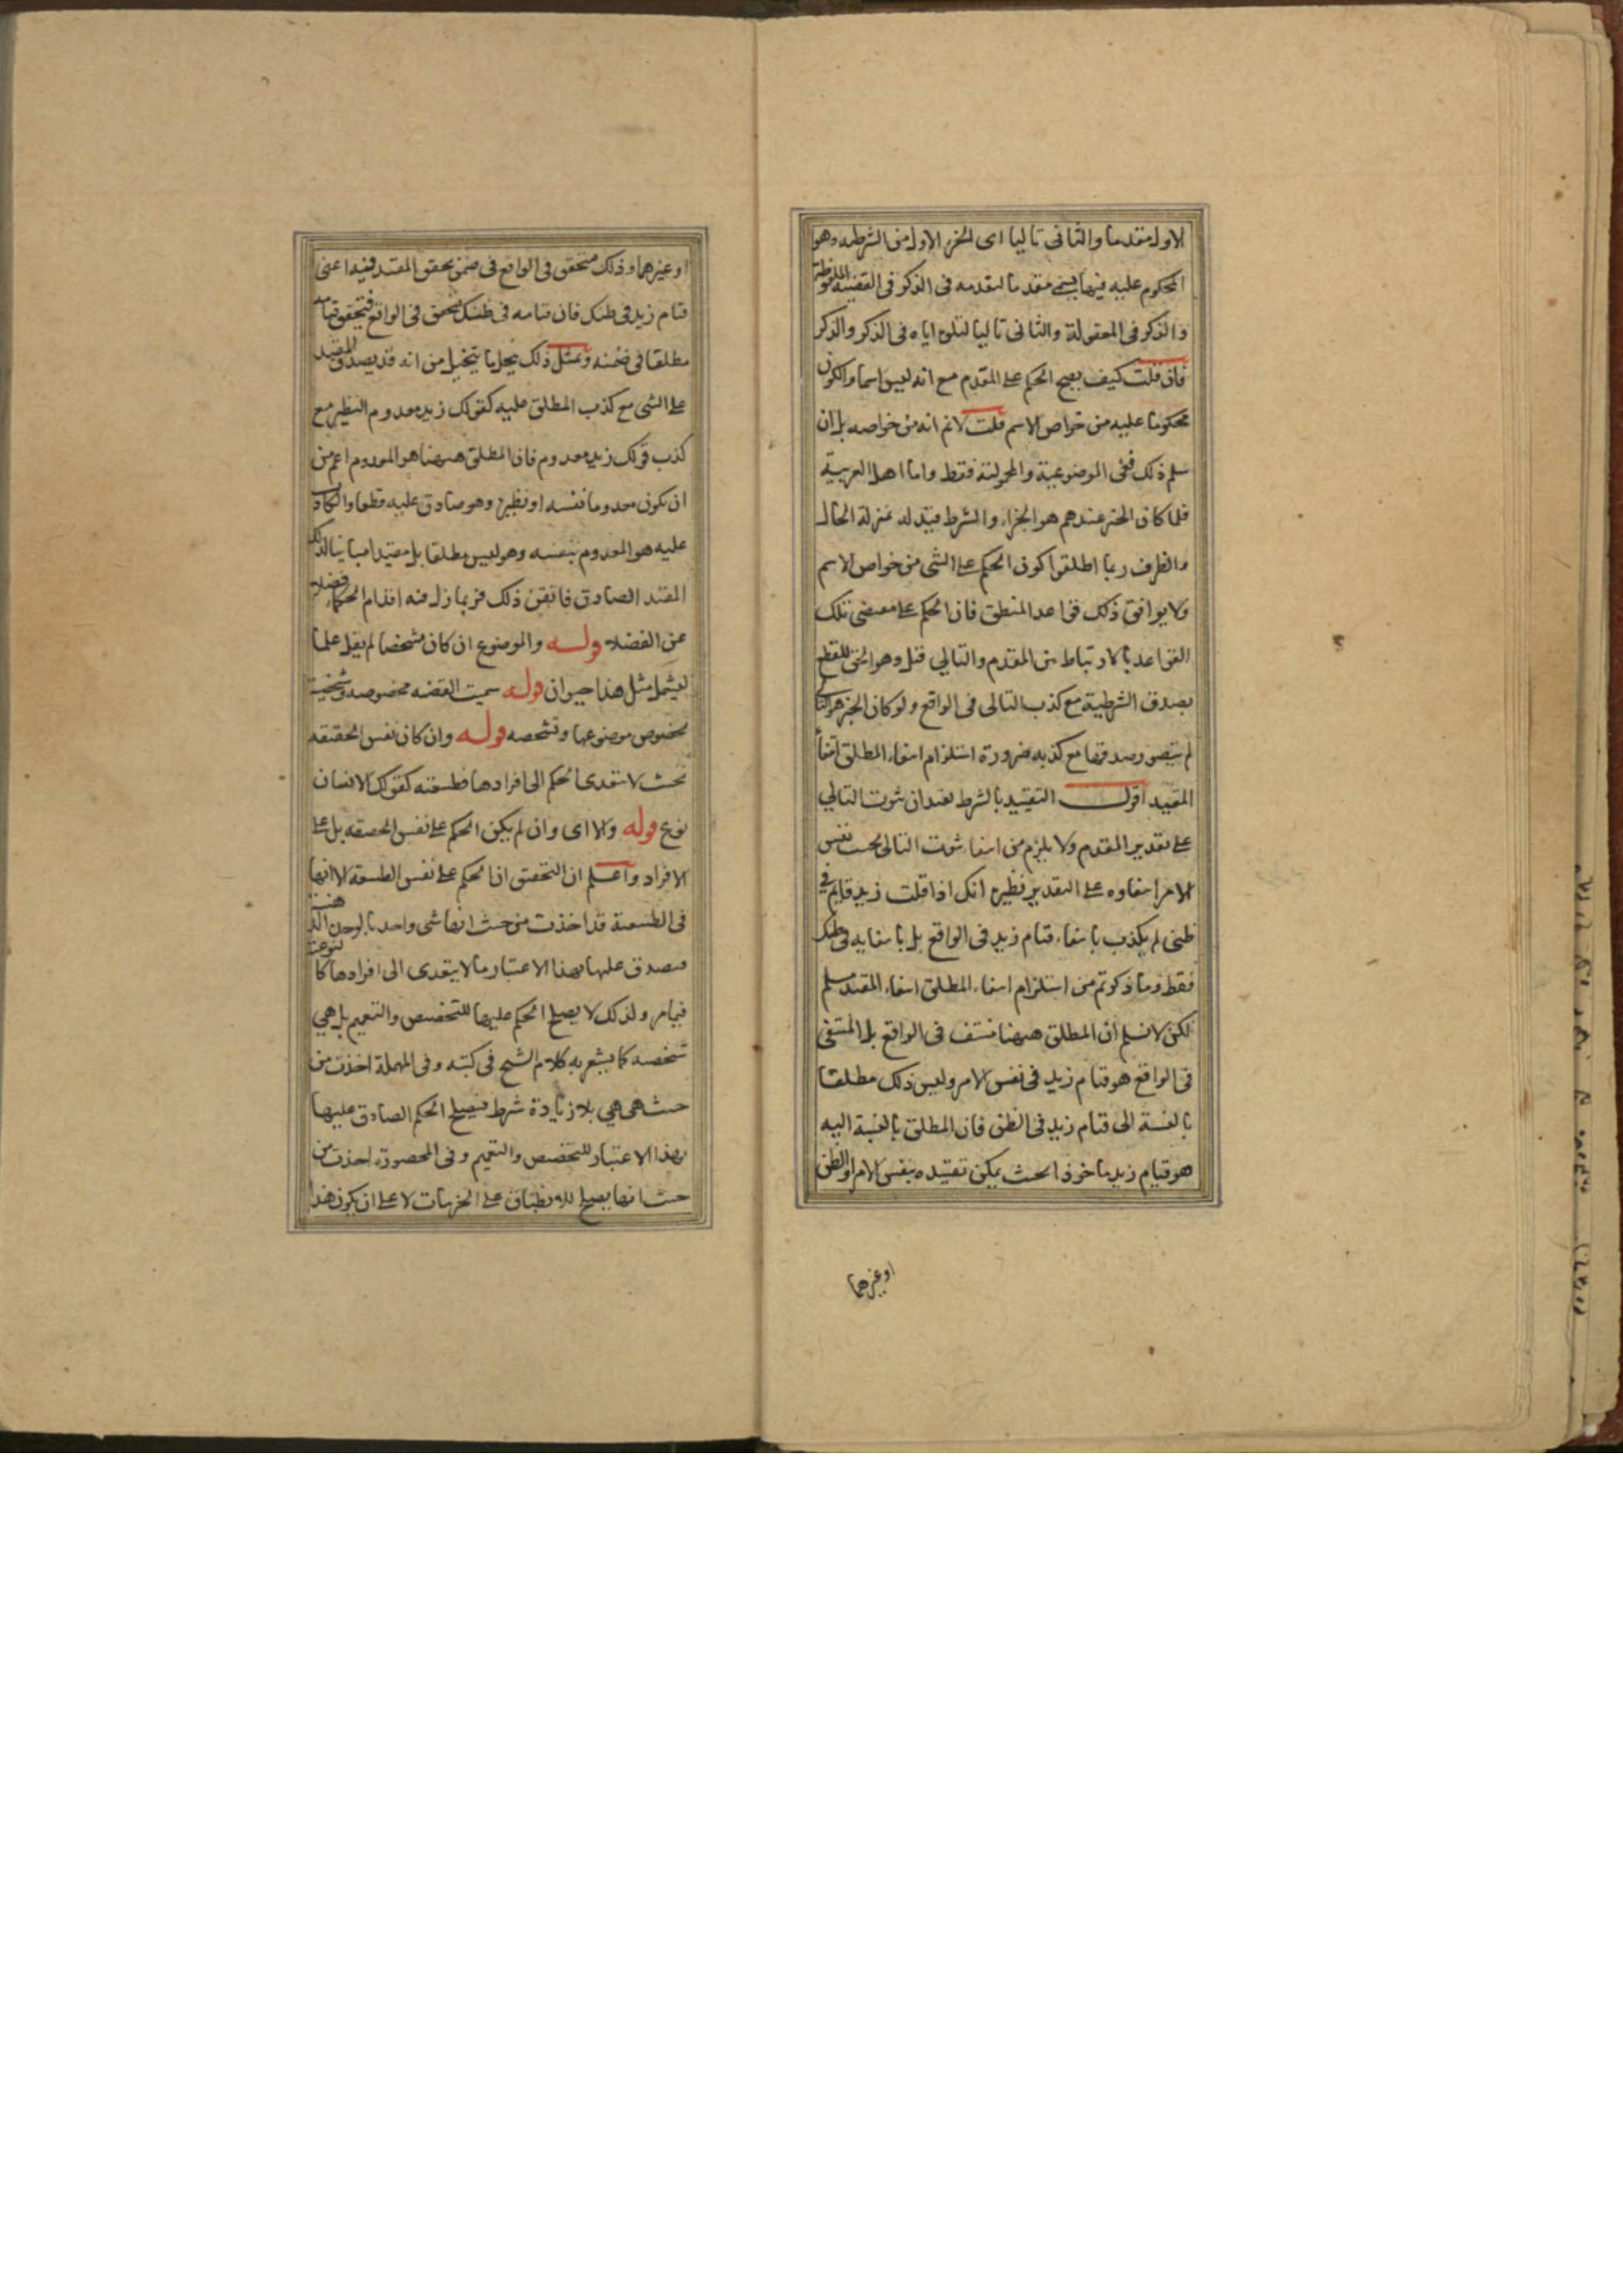 الاول مقدما والثانى تاليا اى الجزء الاول من الشرطيه وهو
المحكوم عليه فيها يسمى مقدما لتقدمه فى الذكر فى القضية الملفوظة
والذكر فى المعقولة والثانى تاليا لتلوه اياه فى الذكر والذكر
فان قلت كيف يصح الحكم على المقدم مع انه ليس اسما والكون
محكوما عليه من خواص الاسم قلت لانم انه من خواصه بل ان
سلم ذلك ففى الموضوعية والمحمولية فقط واما اهل العربية
فلما كان الخبر عندهم هو الجزاء والشرط قيد له بمنزلة الحال
والظرف ربما اطلقوا كون الحكم على الشى من خواص الاسم
ولا يوافق ذلك قواعد المنطق فان الحكم على مقتضى تلك
القواعد بالارتباط بين المقدم والتالي قيل وهو الحق للقطع
بصدق الشرطية مع كذب التالى فى الواقع ولو كان الخبر هو التالى
لم يتصور صدقها مع كذبه ضرورة استلزام انتفاء المطلق انتفاء
المقيد اقول التقييد بالشرط يفيد ان ثبوت التالي
على تقدير المقدم ولا يلزم من انتفاء ثبوت التالى بحسب نفس
الامر انتفاوه على التقدير نظيره انك اذا قلت زيد قايم فى
ظنى لم يكذب بانتفاء قيام زيد فى الواقع بل بانتفايه فى ظنك
فقط وما ذكرتم من استلزام انتفاء المطلق انتفاء المقيد مسلم
لكن لانسلم ان المطلق ههنا منتف فى الواقع بل المنتفى
فى الواقع هو قيام زيد فى نفس الامر وليس ذلك مطلقا
بالنسبة الى قيام زيد فى الظن فان المطلق بالنسبة اليه
هو قيام زيد ماخوذا بحيث يمكن تقييده بنفس الامر او الظن
او غيرهما
او غيرهما وذلك متحقق فى الواقع فى ضمن تحقق المقيد فيه اعنى
قيام زيد فى ظنك فان قيامه فى ظنك متحقق فى الواقع فيتحقق قيامه
مطلقا فى ضمنه وبمثل ذلك ينحل ما يتخيل من انه قد يصدق المقيد
على الشى مع كذب المطلق عليه كقولك زيد معدوم النظير مع
كذب قولك زيد معدوم فان المطلق ههنا هو المعدوم اعم من
ان يكون معدوما نفسه او نظيره وهو صادق عليه قطعا والكاذب
عليه هو المعدوم بنفسه وهو ليس مطلقا بل مقيدا مباينا لذلك
المقيد الصادق فاتقن ذلك فربما زل فيه اقدام الحكماء فضلا
عن الفضلا قوله والموضوع ان كان مشخصا لم يقل علما
ليشمل مثل هذا حيوان قوله سميت القضيه مخصوصه وشخصية
لخصوص موضوعها وتشخصه قوله وان كان نفس الحقيقه
بحيث لا يتعدى الحكم الى افرادها فطبيعيه كقولك الانسان
نوع قوله والا اى وان لم يكن الحكم على نفس الحقيقه بل على
الافراد واعلم ان التحقيق ان الحكم على نفس الطبيعة الا انها
فى الطبيعية قد اخذت من حيث انها شى واحد بالوحدة الذهنية
فيصدق عليها بهذا الاعتبار ما لا يتعدى الى افرادها كالنوعية
فيما مر ولذلك لا يصلح الحكم عليها للتخصيص والتعميم بل هي
شخصيه كما يشعر به كلام الشيخ فى كتبه وفى المهملة اخذت من
حيث هى هي بلا زيادة شرط فيصلح الحكم الصادق عليها
بهذا الاعتبار للتخصيص والتعميم وفى المحصورة اخذت من
حيث انها يصلح للانطباق على الجزييات لا على ان يكون هذا